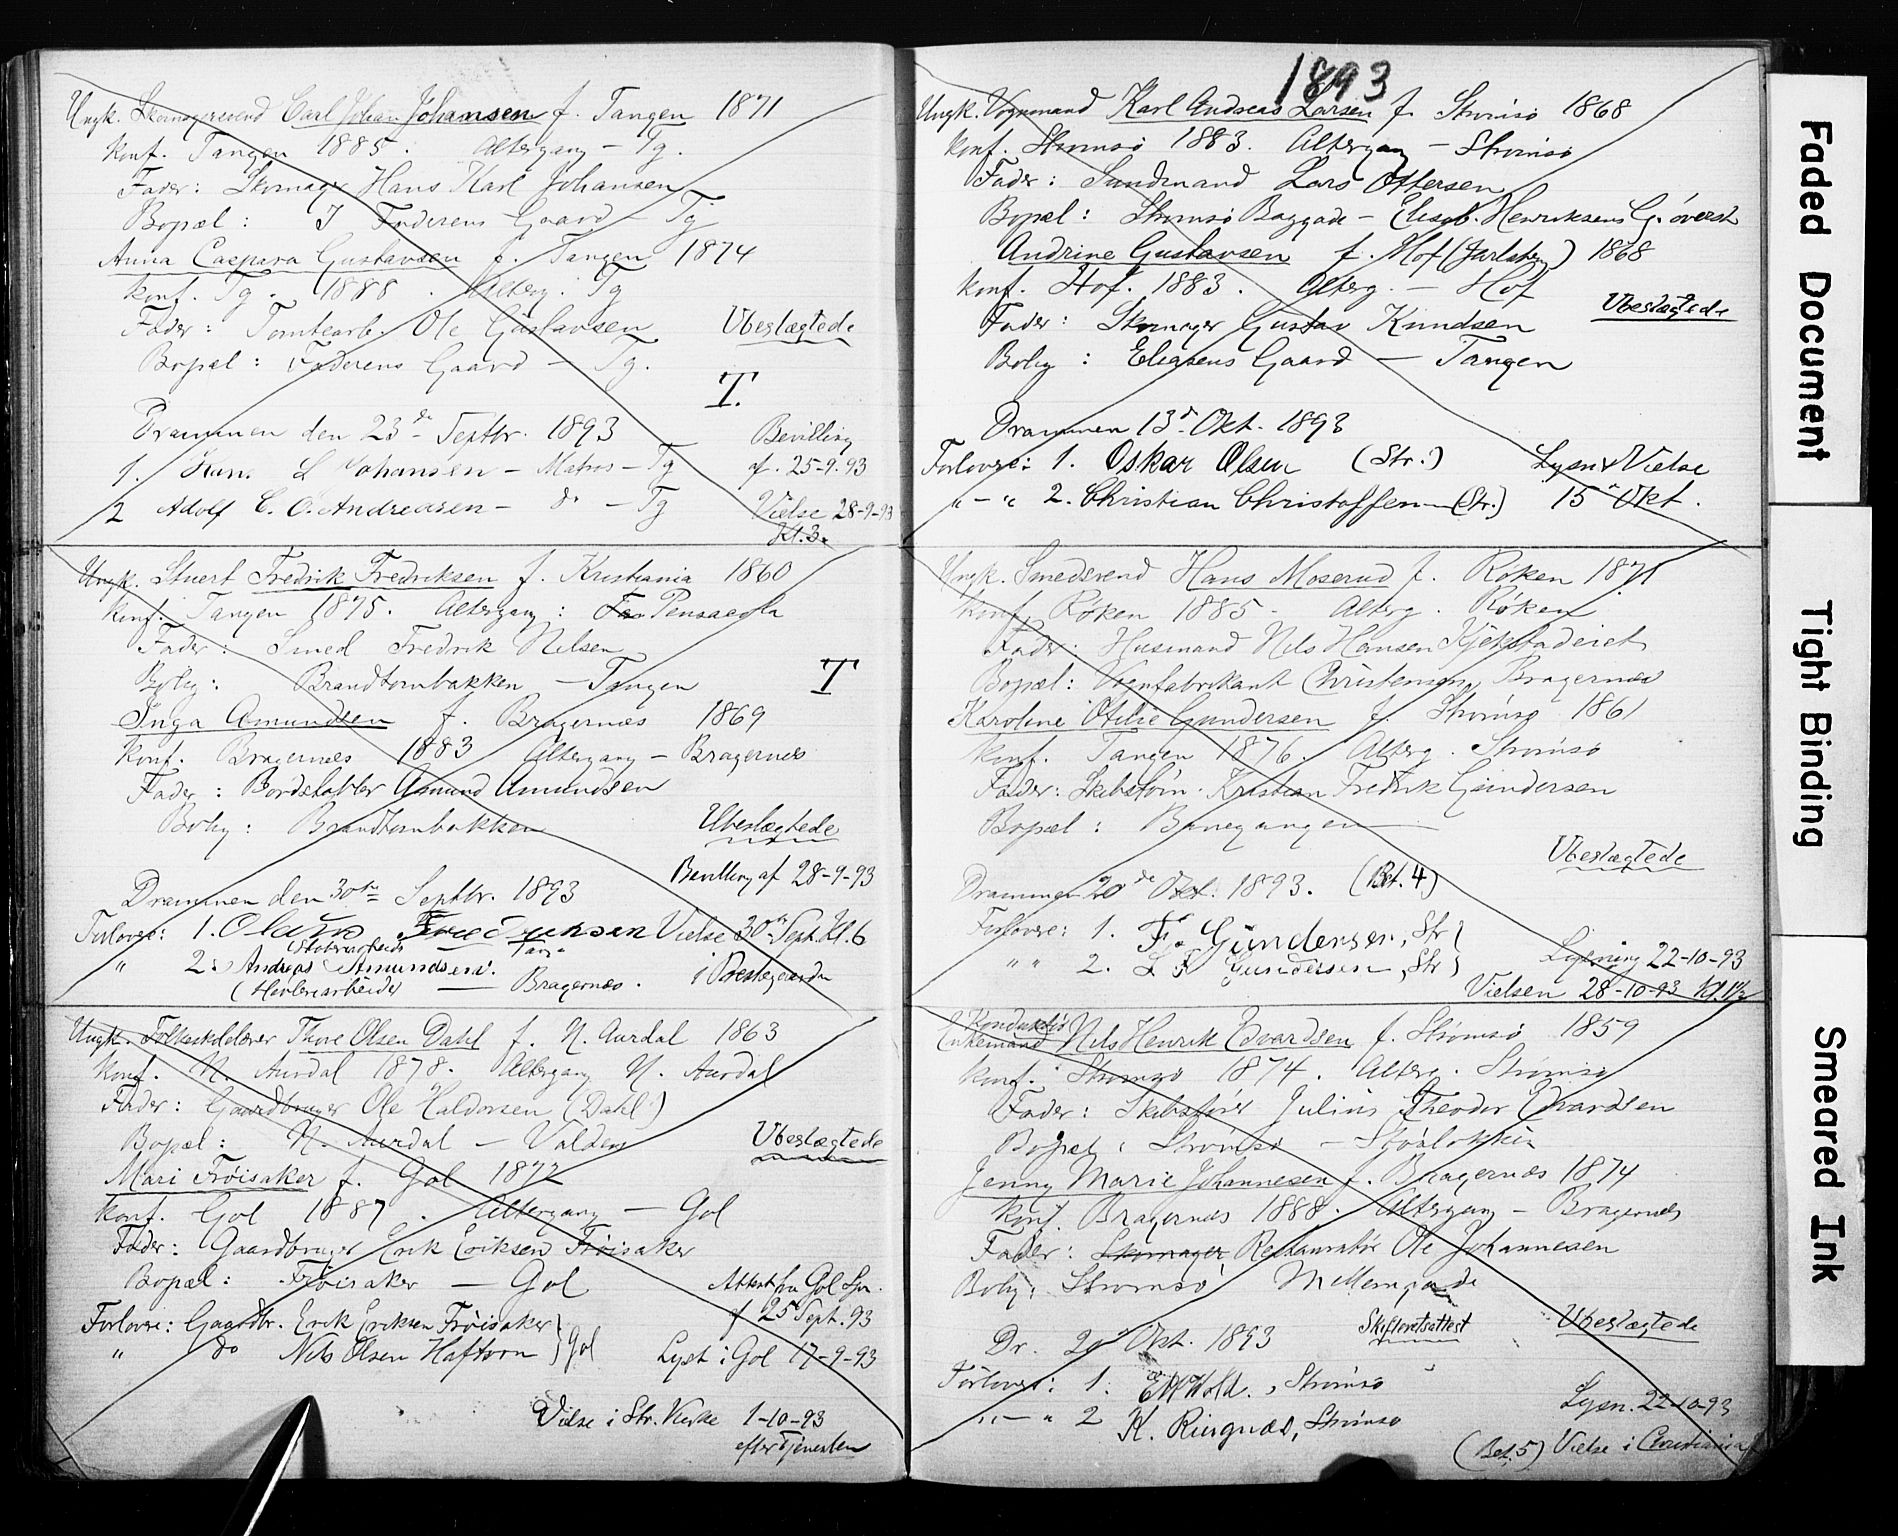 Ungk. Skomagersvend Carl Johan Johansen f. Tangen 1871
Konf. Tangen 1885. Altergang – Tg.
Fader: Skomager Hans Karl Johansen
Bopæl: I Faderens Gaard – Tg
Anna Caspara Gustavsen f. Tangen 1874
Konf. Tg. 1888. Alterg. Tg
Fader: Tomtearb. Ole Gustavsen
Ubeslægtede
Bopæl: Faderens Gaard – Tg.
T.
Drammen den 23de Septbr. 1893
Bevilling
1. Johansen – Matros – Tg
af. 25-9-93
2 Adolf C. O. Andreasen – do – Tg
Vielse 28-9-93
Kl. 3.
Ungk. Stuert Fredrik Fredriksen f. Kristiania 1860
Konf. Tangen 1875. Altergang: Pensacola
Fader: Smed Fredrik Nilsen
Bolig: Brandtornbakken – Tangen
T
Inga Amundsen f. Bragernæs 1869
Konf. Bragernæs 1883 Altergang – Bragernæs
Fader: Bordstabler Amund Amundsen
Bolig: Brandtornbakken
Ubeslægtede
Bevilling af 28-9-93
Drammen den 30te Septbr. 1893
Forlovre: 1. Olaus Fredriksen Vielse 30te Sept. Kl. 6
Tang.
" 2. Andreas Amundsen.
i Præstegaarden
(Høvleriarbeider — Bragernæs.
Ungk. Folkeskolelærer Thore Olsen Dahl f. N. Aurdal 1863
Konf. N. Aurdal 1878. Altergang N. Aurdal
Fader: Gaardbruger Ole Haldorsen (Dahl)
Bopæl: N. Aurdal – Valders
Ubeslægtede
Mari Frøisaker f. Gol 1872
Konf. Gol 1887. Altergang – Gol
Fader: Gaardbruger Erik Eriksen Frøisaker
Bopæl: Frøisaker — Gol
Attest fra Gol Spr.
af 25 Sept. 93
Forlovre: Gaardbr. Erik Eriksen Frøisaker
" do Nils Olsen Haftorn } Gol
Lyst i Gol 17-9-93
Vielse i Str. Kirke 1-10-93
efter Tjenesten
1893
Ungk. Vognmand Karl Andreas Larsen f. Strømsø 1868
Konf. Strømsø 1883. Altergang – Strømsø
Fader: Sandmand Lars Ottersen
Bopæl: Strømsø Baggade – Elisab. Henriksens G. øverst
Andrine Gustavsen f. Hof (Jarlsberg) 1868
Konf. Hof. 1883. Alterg. – Hof
Ubeslægtede
Fader: Skomager Gustav Knudsen
Bolig: Eliasens Gaard — Tangen
Drammen 13de Okt. 1893
Forlovre: 1. Oskar Olsen (Str.)
Lysn & Vielse
" – " 2. Christian Christoffersen (Str.)
15 Okt.
Ungk. Smedsvend Hans Moserud f. Røken 1871
Konf. Røken 1885 – Alterg. Røken
Fader: Husmand Nils Hansen Kjekstadeiet
Bopæl: Vognfabrikant Christensen, Bragernæs
Karoline Otilie Gundersen f. Strømsø 1861
Konf. Tangen 1876. Alterg. Strømsø
Fader: Skibstøm. Kristian Fredrik Gundersen
Bopæl: Banegangen
Ubeslægtede
Drammen 20de Okt. 1893. (Bet. 4)
Forlovre: 1. F. Gundersen, Str
" " 2. Gundersen, Str
Lysning 22-10-93
Vielsen 28-10-93
Konduktør
Enkemand Nils Henrik Edvardsen f. Strømsø 1859
Konf. Strømsø 1874. Alterg. Strømsø
Fader: Skibsfører Julius Theodor Edvardsen
Bopæl: Strømsø –
Jenny Marie Johannesen f. Bragernæs 1874
Konf. Bragernæs 1888. Altergang – Bragernæs
Fader: Skomager Restauratør Ole Johannesen
Bolig: Strømsø Mellemgade
Skifteretsattest
Ubeslægtede
Dr. 20 Okt. 1893
Forlovre: 1. Strømsø
" – " 2 K. Ringnæs, Strømsø
Lysn. 22-10-93
(Bet. 5) Vielse i Christiania
Faded Document
Tight Binding
Smeared Ink